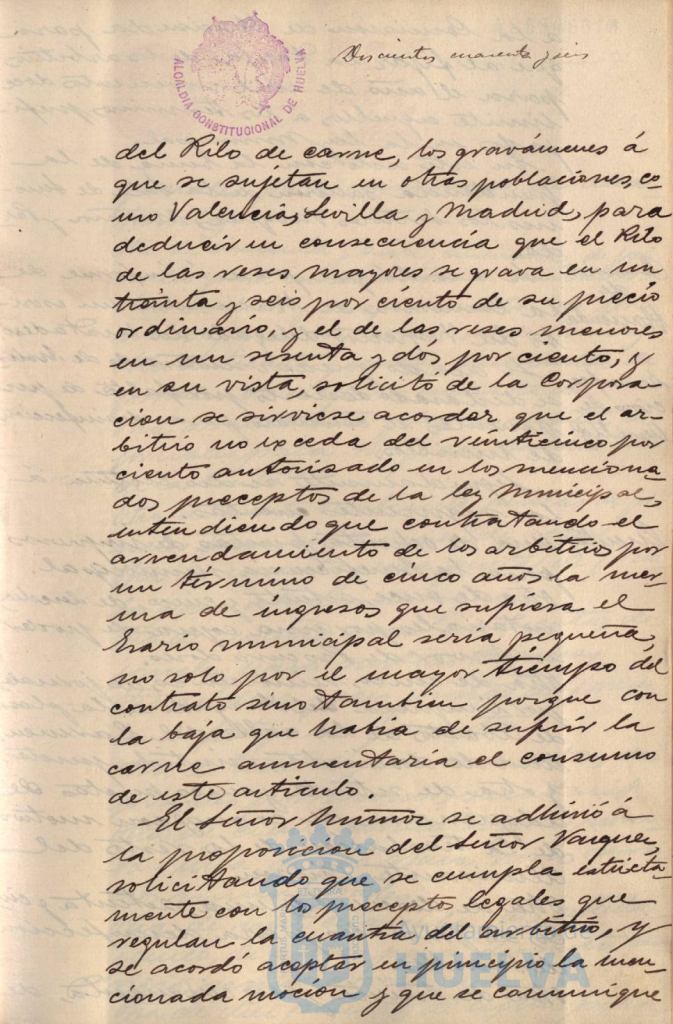 ALCALDIA CONSTITUCIONAL DE HUELVA
Doscientos cuarenta y seis
del Kilo de carne, los gravámenes á
que se sujetan en otras poblaciones, co-
mo Valencia, Sevilla y Madrid, para
deducir en consecuencia que el Kilo
de las reses mayores se grava en un
treinta y seis por ciento de su precio
ordinario, y el de las reses menores
en un sesenta y dós por ciento, y
en su vista, solicitó de la Corpora-
cion se sirviese acordar que el ar-
bitrio no exceda del veinticinco por
ciento autorisado en los menciona-
dos preceptos de la ley Municipal,
entendiendo que contratando el
arrendamiento de los arbitrios por
un término de cinco años la mer-
ma de ingresos que supiera el
Erario municipal seria pequeña,
no solo por el mayor tiempo del
contrato sino tambien porque con
la baja que habia de sufrir la
carne aumentaria el consumo
de este articulo.
El Señor Muñoz se adhirió á
la proposicion del Señor Vazquez,
solicitando que se cumpla estricta-
mente con los preceptos legales que
regulan la cuantia del arbitrio, y
se acordó aceptar en principio la men-
cionada moción y que se comunique
HUELVA